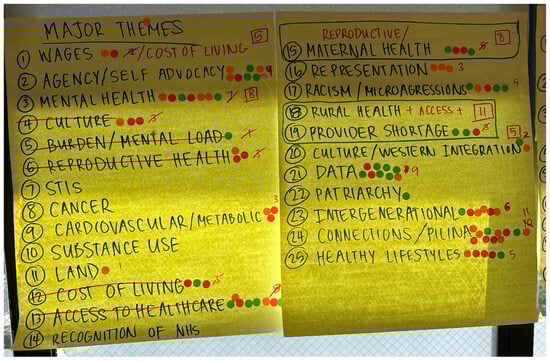 MAJOR THEMES
① WAGES /COST OF LIVING 5
② AGENCY/SELF ADVOCACY 9
③ MENTAL HEALTH 7 8
④ CULTURE 3
⑤ BURDEN/MENTAL LOAD 1
⑥ REPRODUCTIVE HEALTH 3
⑦ STIS
⑧ CANCER
⑨ CARDIOVASCULAR/METABOLIC 3
⑩ SUBSTANCE USE
⑪ LAND 1
⑫ COST OF LIVING
⑬ ACCESS TO HEALTHCARE
⑭ RECOGNITION OF NHs
REPRODUCTIVE/
⑮ MATERNAL HEALTH 8
⑯ REPRESENTATION 3
⑰ RACISM/MICROAGRESSIONS 5
⑱ RURAL HEALTH + ACCESS + 11
⑲ PROVIDER SHORTAGE 5
⑳ CULTURE/WESTERN INTEGRATION 2
㉑ DATA 9
㉒ PATRIARCHY
㉓ INTERGENERATIONAL 6
㉔ CONNECTIONS/PILINA 11
㉕ HEALTHY LIFESTYLES 5